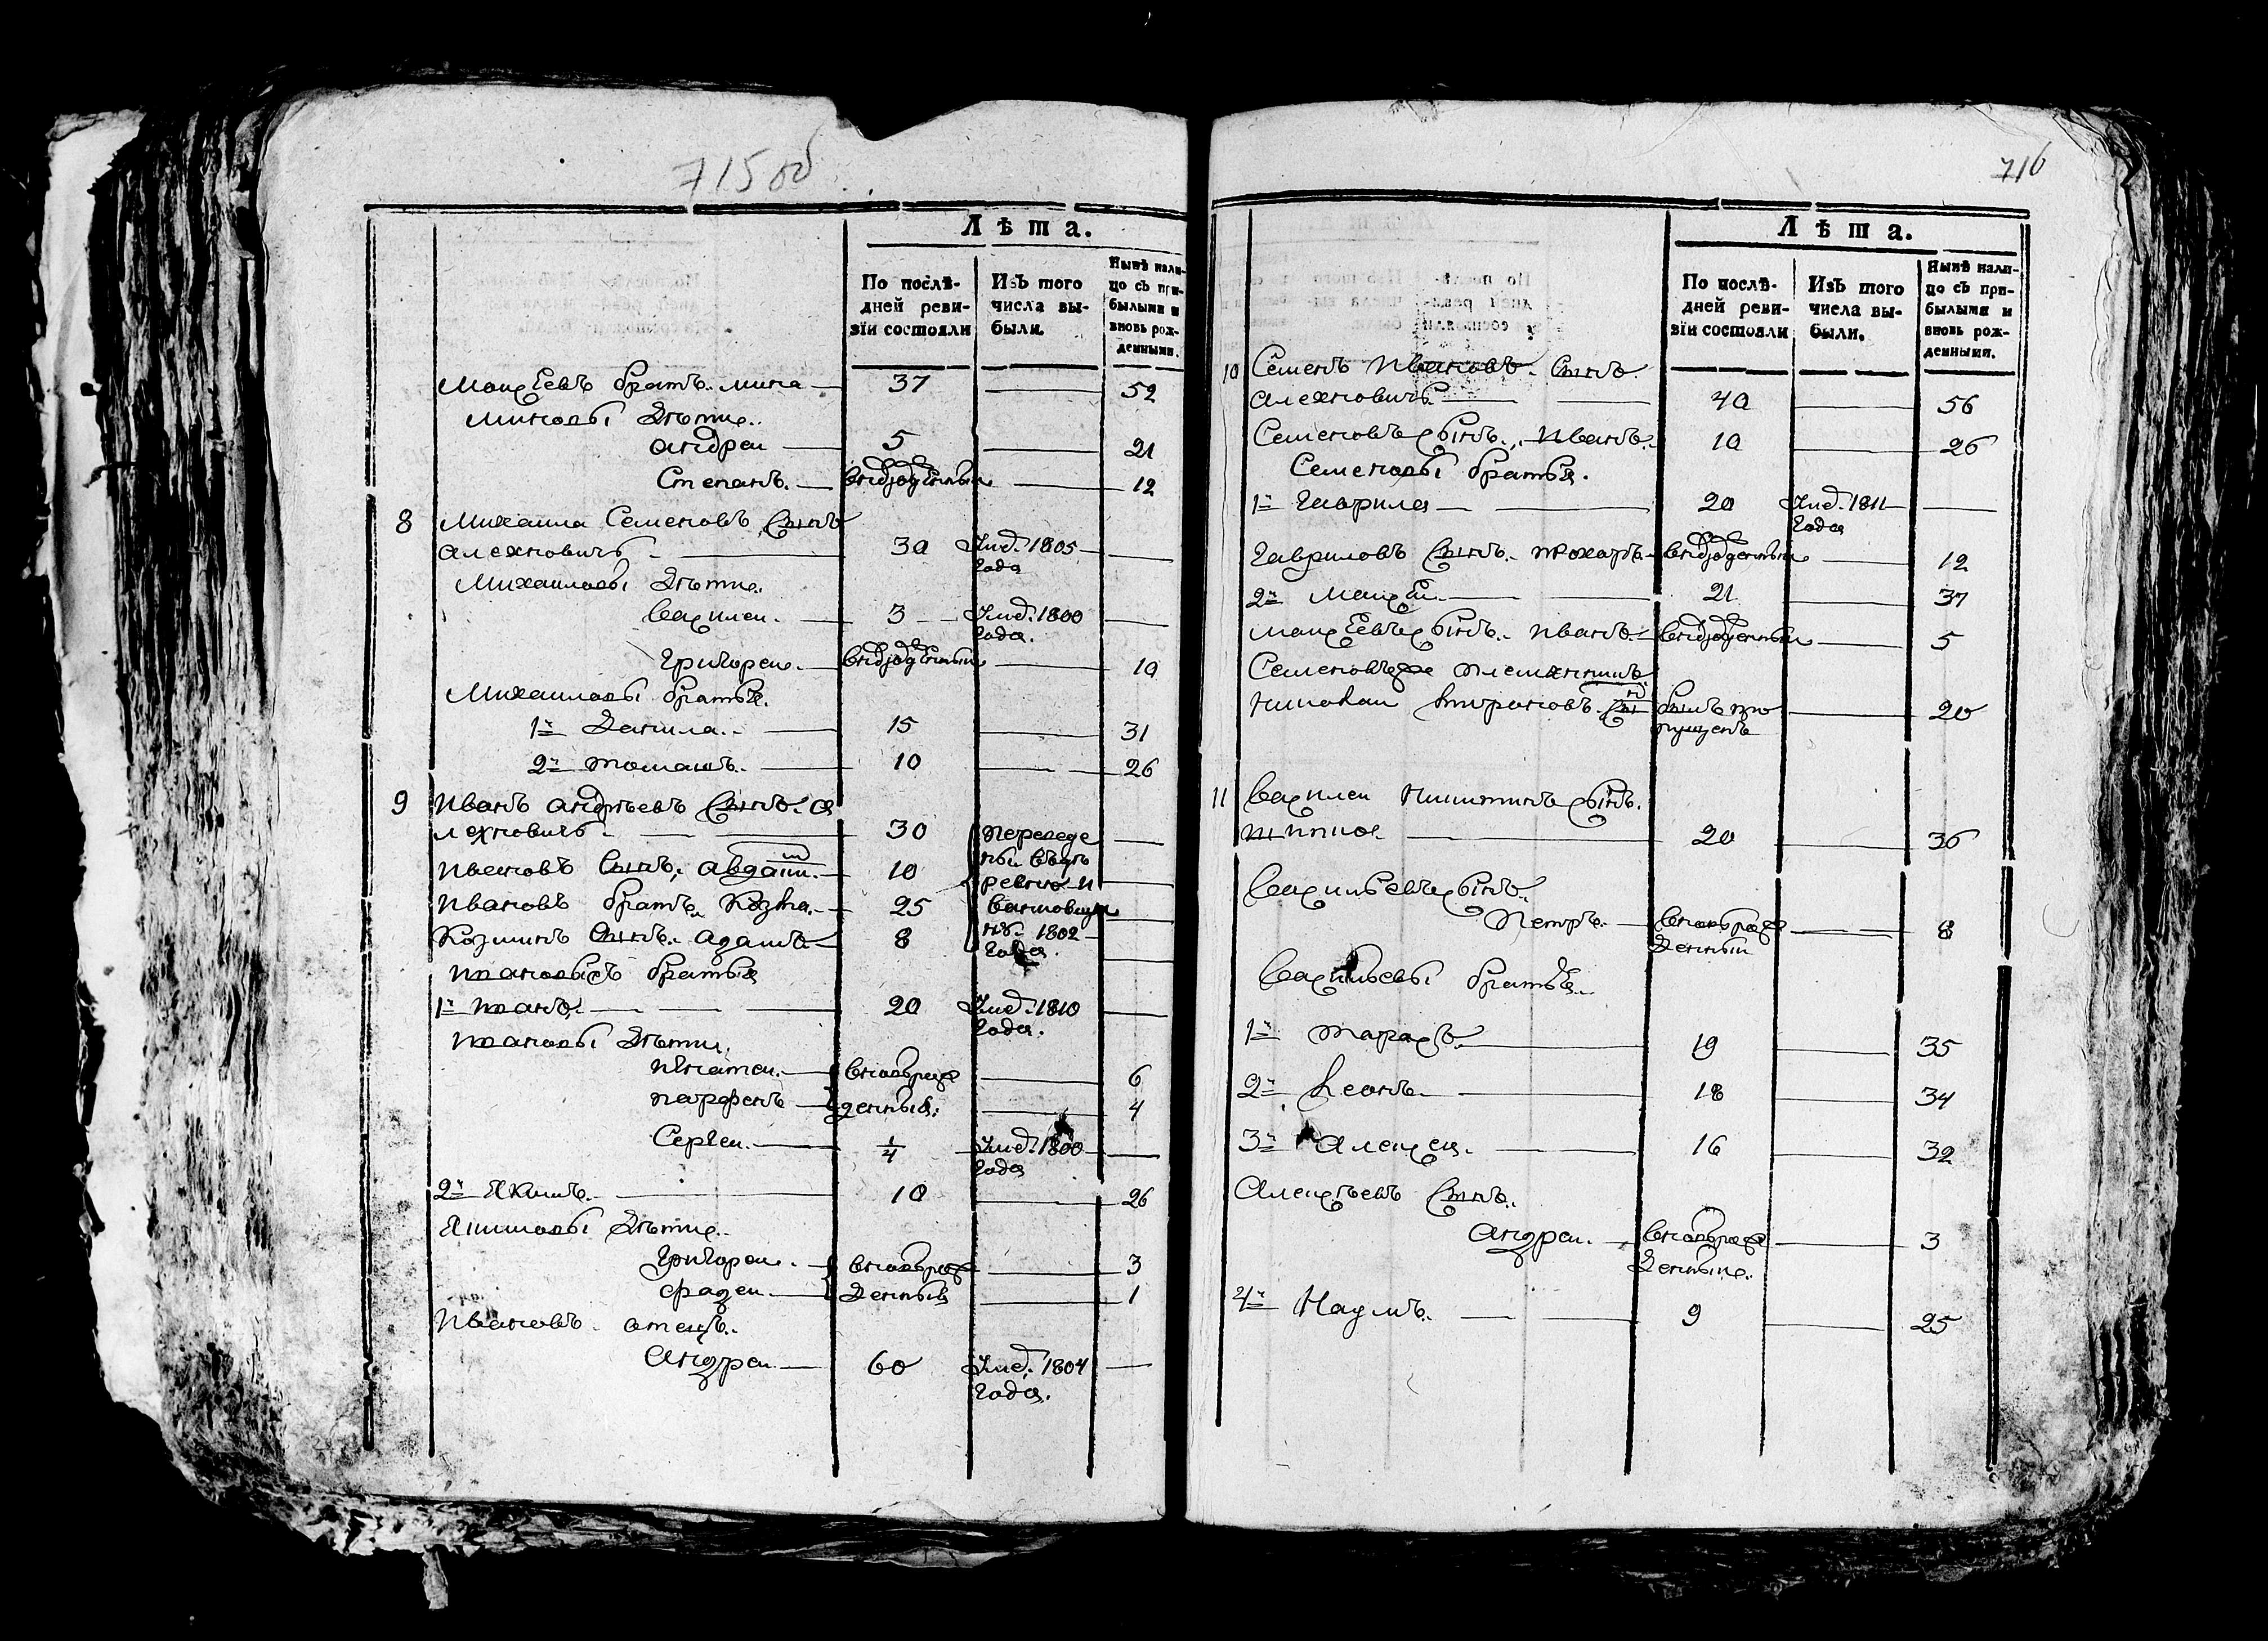 715 об
Лѣта.
По послѣ-
дней реви-
зіи состояли
Изъ того
числа вы-
были.
Нынѣ нали-
цо съ при-
былыми и
вновь рож-
денными.
Моисеевъ братъ Мина — 37 — 52
Миновы дѣти
Андреи — 5 — 21
Степанъ — внврожденныи — 12
8 Михаила Семеновъ сынъ
Алехновичъ — 30 Умер. 1805 —
года
Михаиловы дѣти
Василеи — 3 — Умер. 1800 —
года.
Григореи — внврожденныи — 10
Михаиловы братья
1й Данила — 15 — 31
2й Томашъ — 10 — 26
9 Иванъ Андреевъ сынъ А
лехновичъ — 30 переведе —
Ивановъ сынъ Авдаш — 10 ны въде —
Ивановъ братъ Козма — 25 ревню И
Козминъ сынъ Адамъ — 8 вановщи
нъ 1802
года.
Ивановы братья
1й Иванъ — 20 Умер. 1810 —
года.
Ивановы дѣти
Игнатеи — вновьрож — 6
Парфенъ — денныя — 4
Сергеи — 1/4 Умер. 1800 —
года
2й Якимъ — 10 — 26
Якимовы дѣти
Григореи — вновьрож — 3
Фадеи — денныя — 1
Ивановъ отецъ
Андреи — 60 Умер. 1804 —
года.
716
Лѣта.
По послѣ-
дней реви-
зіи состояли
Изъ того
числа вы-
были.
Нынѣ нали-
цо съ при-
былыми и
вновь рож-
денными.
10 Семенъ Ивановъ сынъ
Алехновичъ — 40 — 56
Семеновъ сынъ Иванъ — 10 — 26
Семеновы братья
1й Гаврила — 20 Умер. 1811 —
года
Гавриловъ сынъ Прохоръ — внврожденныи — 12
2й Моисеи — 21 — 37
Моисеевъ сынъ Иванъ — внврожденныи — 5
Семеновъ же племянникъ
Николаи сынъ былъ про — 20
пущенъ
11 Василеи Никитинъ сынъ
— 20 — 36
Васильевъ сынъ
Петръ — вновьрож — 8
денныи
Васильевы братья
1й Тарасъ — 19 — 35
2й Леонъ — 18 — 34
3й Алексеи — 16 — 32
Алексѣевъ сынъ
Андреи — вновьрож — 3
денныи
4й Наумъ — 9 — 25